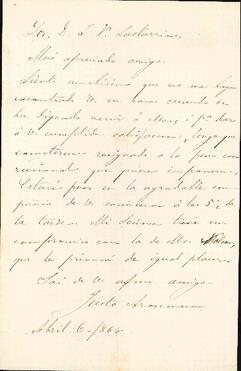 Sor. D. J. V. Lastarria.
Mui apreciado amigo.
Siento muchisimo que no me haya
encontrado V. en casa cuando se
ha dignado venir á ella, i para dar
á V. cumplida satisfaccion, tengo que
someterme resignado á la pena con
que quiera imponerme.
Estaré pues en la agradable com
pañia de V. mañana á las 5 ½ de
la tarde. Mi Señora tiene un
compromiso con la de Mr.
que le privará de igual placer.
Soi de V. afmo. amigo.
Justo Arosemena
Abril 6 -/864